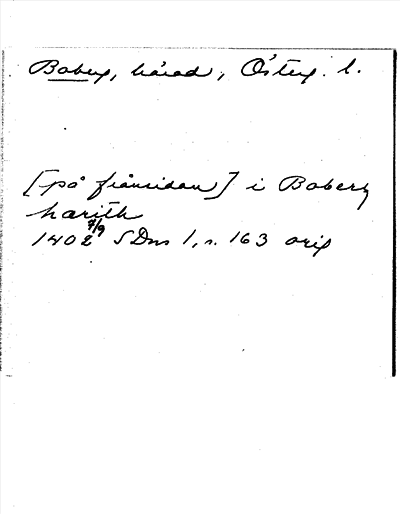 Boberg, härad, Österg. l.
[på frånsidan] i Boberg
harith
1402 7/9 SDns 1, s. 163 orig